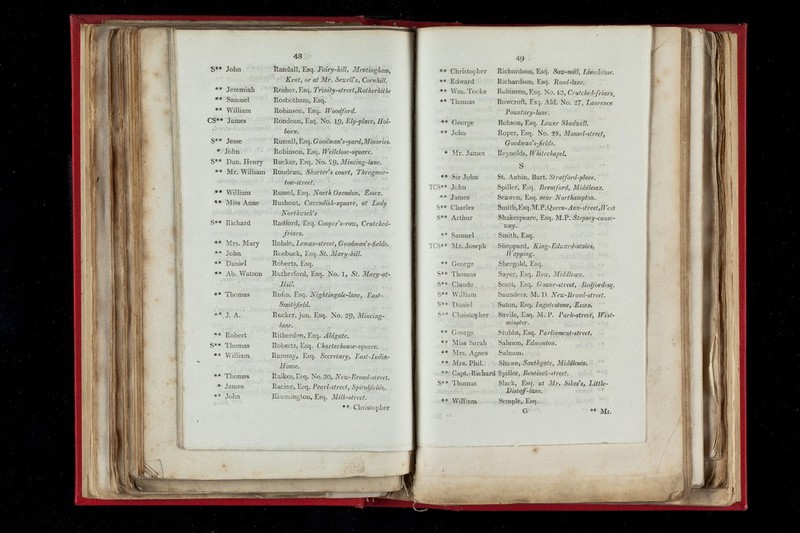 48
S** John Randall, Esq. Fairy-hill, Mottingham,
Kent, or at Mr. Sewell's, Cornhill.
** Jeremiah Rosher, Esq. Trinity-street, Rotherhithe
** Samuel Rosbotham, Esq.
** William Robinson, Esq. Woodford.
CS** James Rondeau, Esq. No. 19, Ely-place, Hol-
born.
S** Jesse Russell, Esq. Goodman's-yard, Minories.
* John Robinson, Esq. Wellclose-square.
S** Dan. Henry Rucker, Esq. No. 29, Mincing-lane.
** Mr. William Rondeau, Shorter's court, Throgmor-
ton-street.
** William Russel, Esq. North Ozendon, Essex.
** Miss Anne Rushout, Cavendish-square, at Lady
Northwick's
S** Richard Radford, Esq. Cooper's-row, Crutched-
friars.
** Mrs. Mary Rohde, Leman-street, Goodman's-fields.
** John Roebuck, Esq. St. Mary-hill.
** Daniel Roberts, Esq.
** Ab. Watson Rutherford, Esq. No. 1, St. Mary-at-
Hill.
** Thomas Rufin, Esq. Nightingale-lane, East-
Smithfield.
** J. A. Rucker, jun. Esq. No. 29, Mincing-
lane.
** Robert Ritherdon, Esq. Aldgate.
S** Thomas Roberts, Esq. Charterhouse-square.
** William Ramsay, Esq. Secretary, East-India-
House.
** Thomas Raikes, Esq. No. 30, New-Broad-street.
* James Racine, Esq. Pearl-street, Spitalfields.
** John Rimmington, Esq. Milk-street.
** Christopher
49
** Christopher Richardson, Esq. Saw-mill, Limehouse.
** Edward Richardson, Esq. Rood-lane.
** Wm. Tooke Robinson, Esq. No. 43, Crutched-friars.
** Thomas Rowcroft, Esq. Ald. No. 27, Laurence
Pountney-lane.
** George Robson, Esq. Lower Shadwell.
** John Roper, Esq. No. 28, Mansel-street,
Goodman's-fields.
* Mr. James Reynolds, Whitechapel.
S
** Sir John St. Aubin, Bart. Stratford-place.
TCS** John Spiller, Esq. Brentford, Middlesex.
** James Scawen, Esq. near Northampton.
S** Charles Smith, Esq. M.P. Queen-Ann-street, West
S** Arthur Shakespeare, Esq. M.P. Stepney-cause-
way.
** Samuel Smith, Esq.
TCS** Mr. Joseph Sheppard, King-Edward-stairs,
Wapping.
** George Shergold, Esq.
S** Thomas Sayer, Esq. Bow, Middlesex.
S** Claude Scott, Esq. Gower-street, Bedford-sq.
S** William Saunders, M. D. New-Broad-street.
S** Daniel Suton, Esq. Ingatestone, Essex.
S** Christopher Savile, Esq. M. P. Park-street, West-
minster.
** George Stubbs, Esq. Parliament-street.
** Miss Sarah Salmon, Edmonton.
** Mrs. Agnes Salmon.
** Mrs. Phil. Shawe, Southgate, Middlesex.
** Capt. Richard Spiller, Bentinck-street.
S** Thomas Slack, Esq. at Mr. Sikes's, Little-
Distaff-lane.
** William Semple, Esq.
G
** Mr.